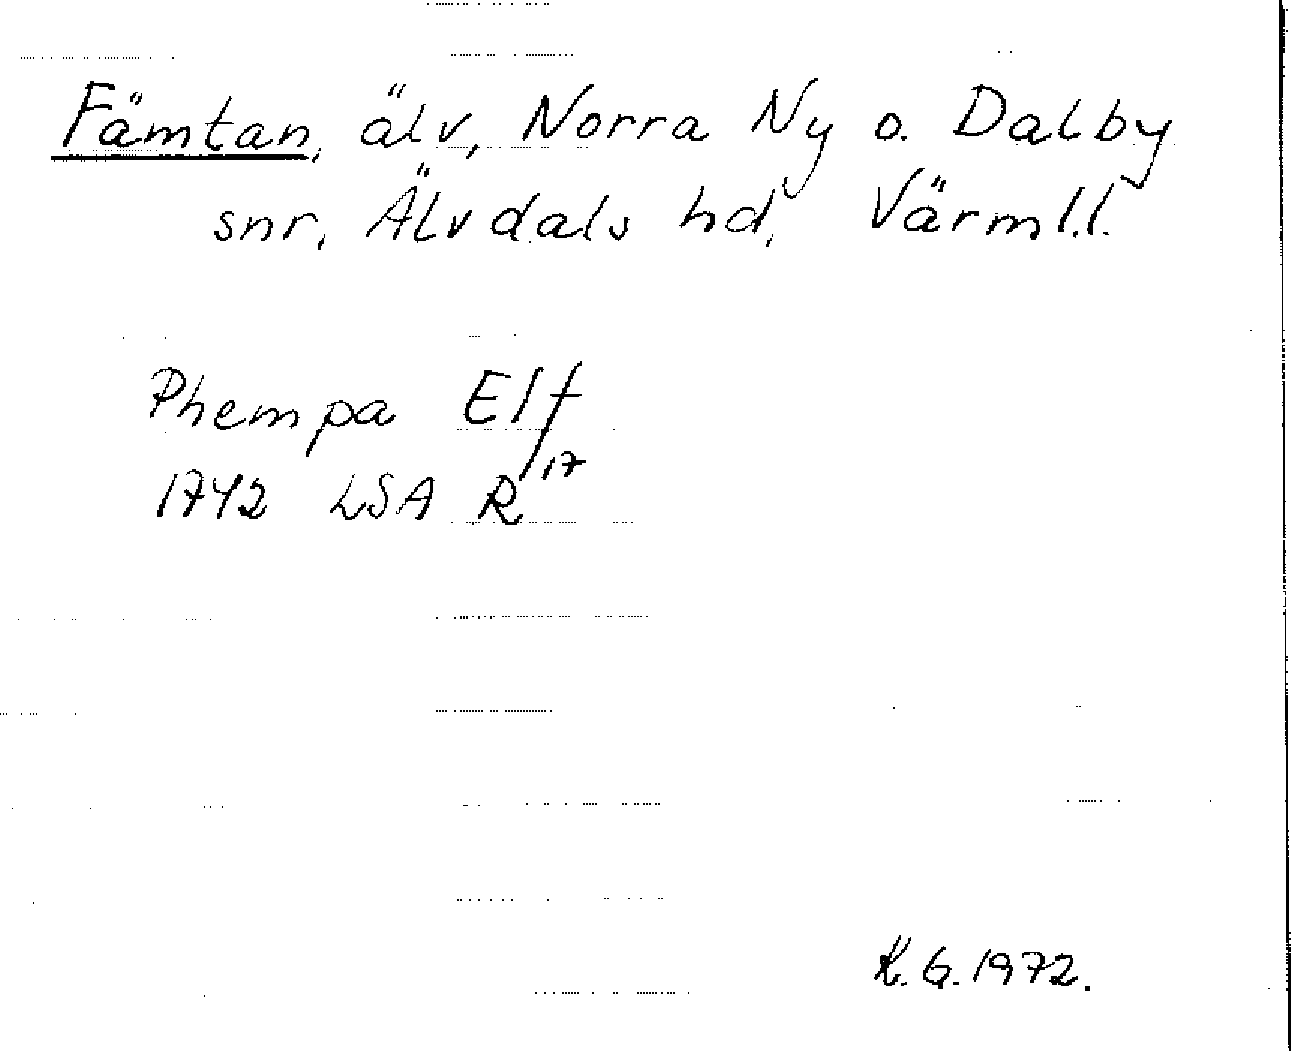 Fämtan, älv, Norra Ny o. Dalby
snr, Älvdals hd, Värml.l.
Phempa Elf
1742 LSA R 17
K.G. 1972.